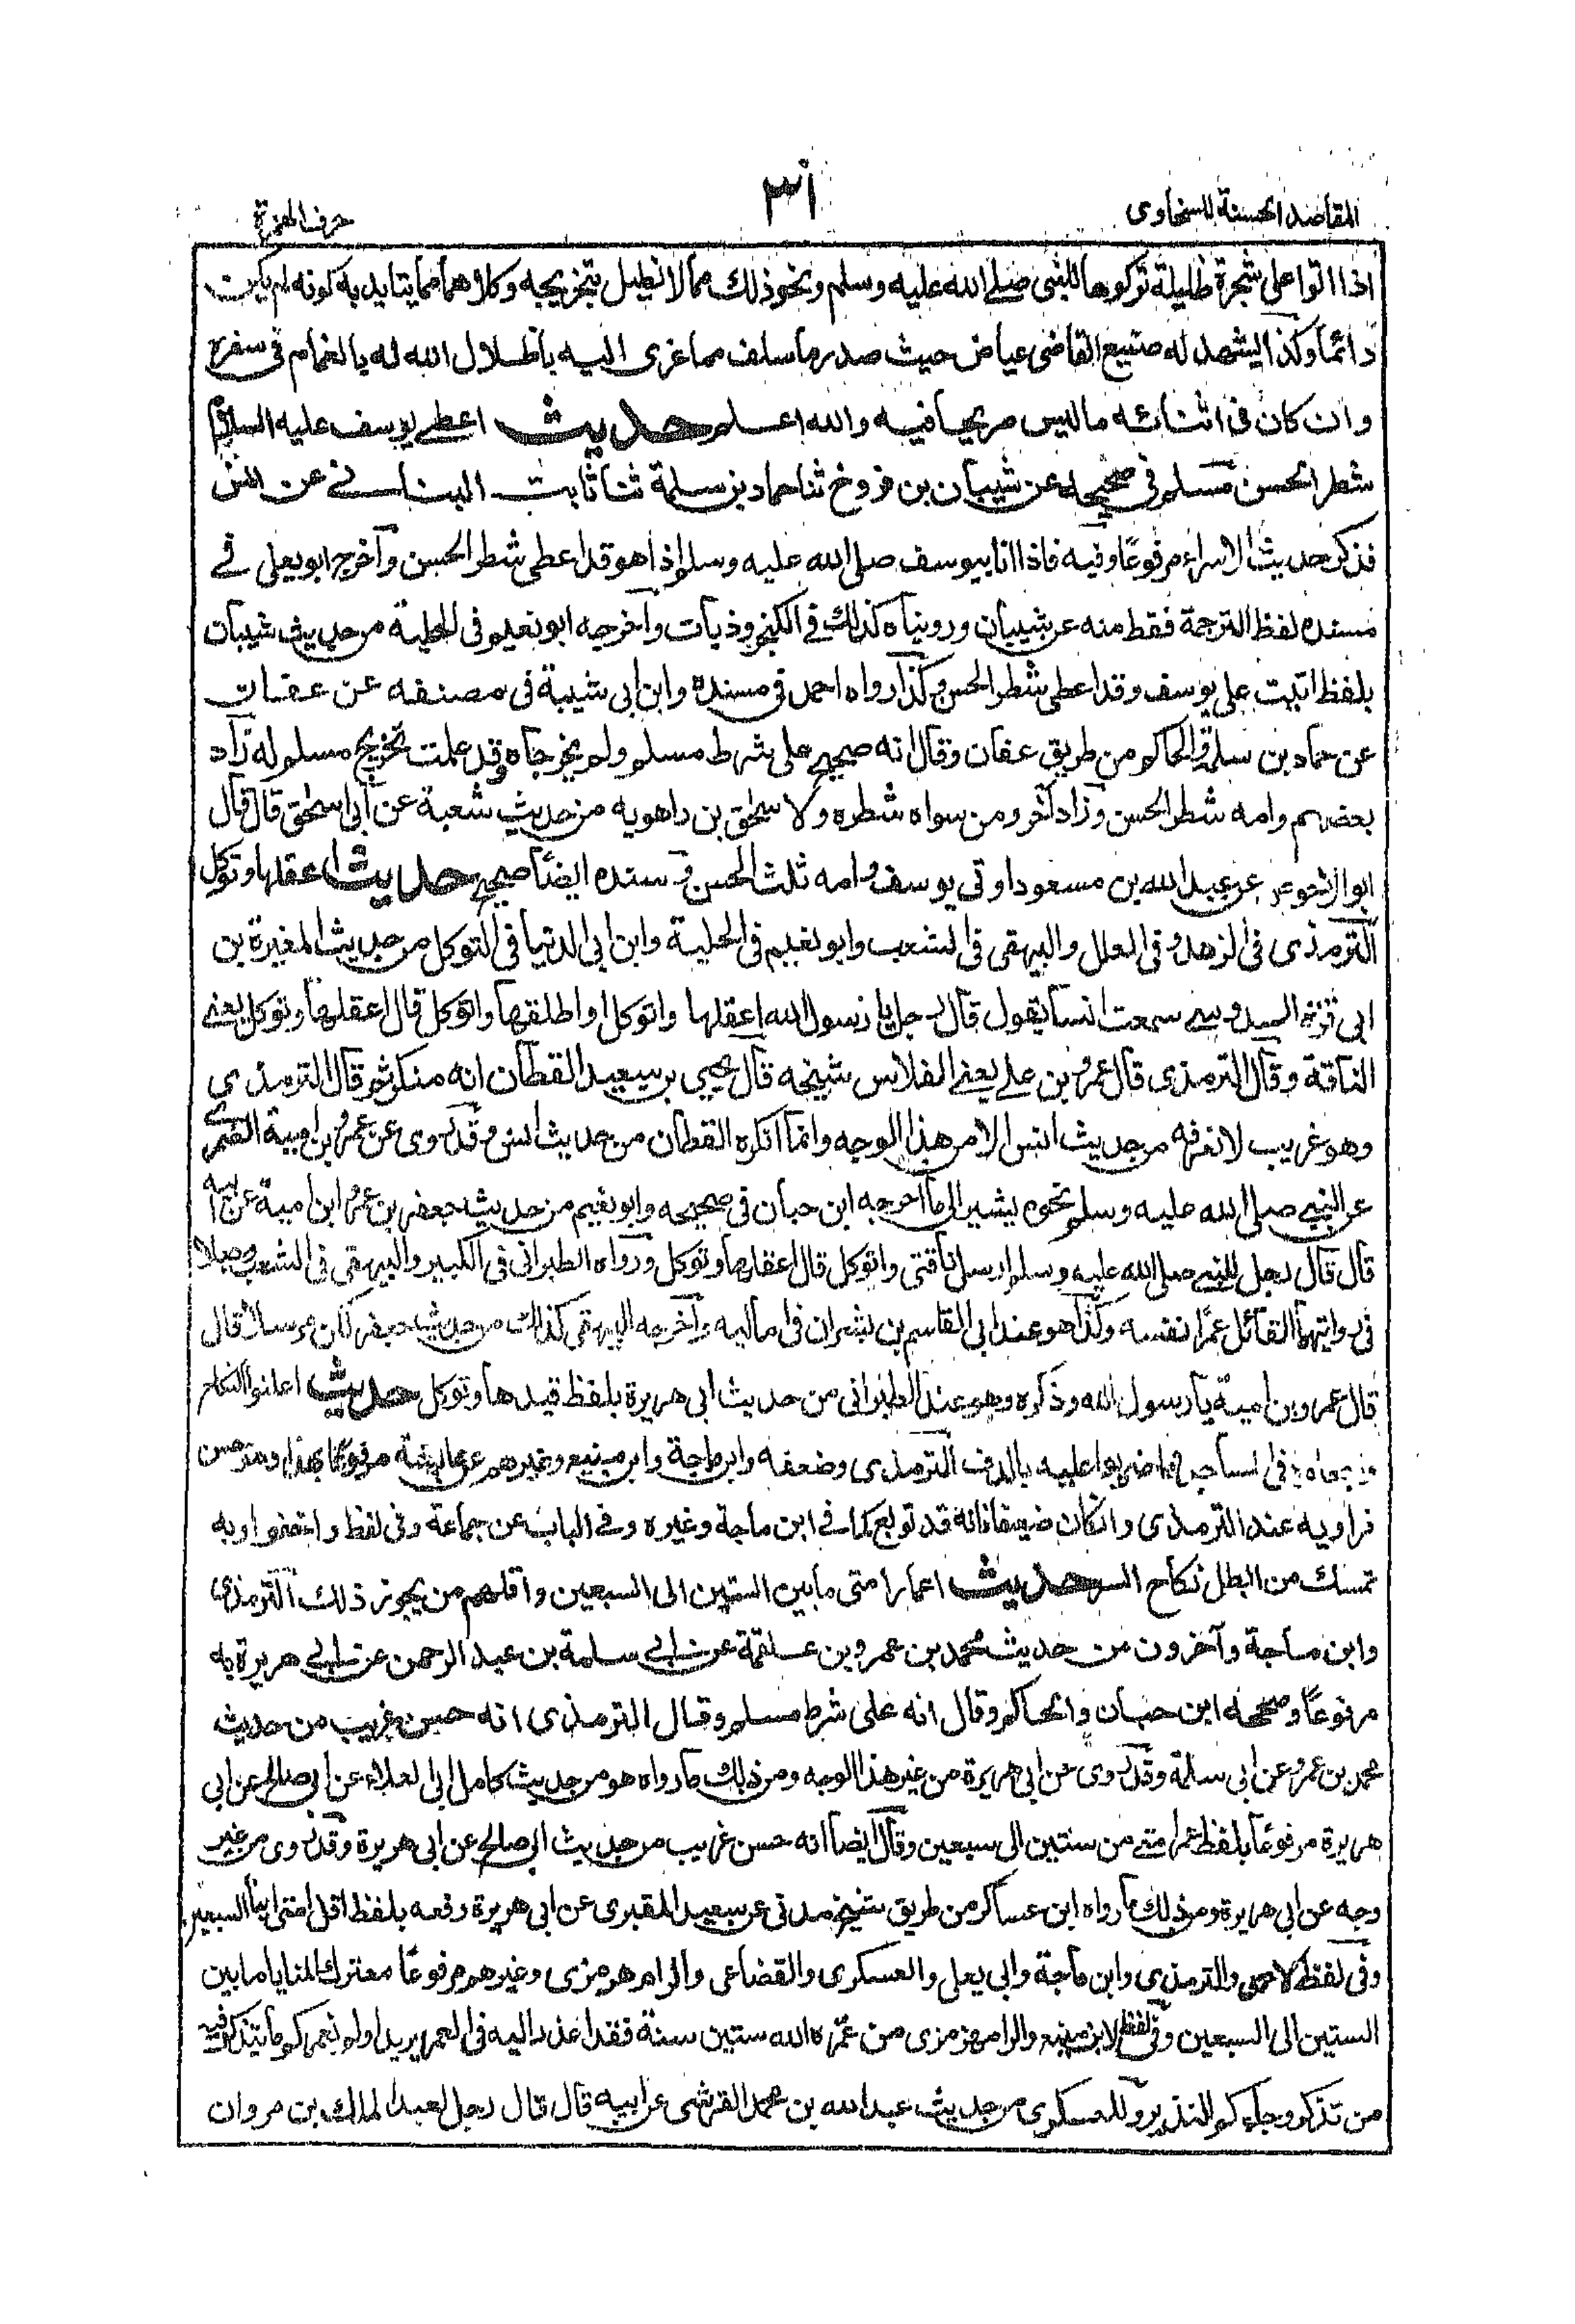 المقاصد الحسنة للسخاوى
٣١
حرف الهمزة
اذا اتوا على شجرة ظليلة تركوها للنبى صلے الله عليه وسلم ونحو ذلك مما لا نطيل بتخريجه وكلاهما مما يتايد به كونه لم يكن
دائما وكذا يشهد له صنيع القاضى عياض حيث صدر ما سلف مما عزى اليه باظلال الله له بالغمام فى سفره
وان كان فى اثنائه ما ليس مريحا فيه والله اعلم حديث اعطے يوسف عليه السلام
شطر الحسن مسلم فى صحيحه عن شيبان بن فروخ ثنا حماد بن سلمة ثنا ثابت البنانے عن انس
فذكر حديث الاسراء مرفوعًا وفيه فاذا انا بيوسف صلى الله عليه وسلم اذا هو قد اعطى شطر الحسن وآخرج ابو يعلى فے
مسنده لفظ الترجمة فقط منه عن شيبان ورويناه كذلك فے الكنجروذيات وآخرجه ابو نعيم فى الحلية من حديث شيبان
بلفظ اتيت على يوسف وقد اعطى شطر الحسن وكذا رواه احمد فى مسنده وابن ابى شيبة فى مصنفه عن عفان
عن حماد بن سلمة والحاكم من طريق عفان وقال انه صحيح على شرط مسلم ولم يخرجاه وقد علمت تخريج مسلم له زاد
بعضهم وامه شطر الحسن وزاد آخر ومن سواه شطره ولاسحٰق بن راهويه من حديث شعبة عن أبى اسحٰق قال قال
ابو الاحوص عن عبد الله بن مسعود اوتى يوسف وامه ثلث الحسن وسنده ايضًا صحيح حديث اعقلها وتوكل
الترمذى فى الزهد وفى العلل والبيهقى فى الشعب وابو نعيم فى الحلية وابن ابى الدنيا فى التوكل من حديث المغيرة بن
ابى قرة السدوسے سمعت انسا يقول قال رجل يا رسول الله اعقلها واتوكل او اطلقها واتوكل قال اعقلها وتوكل يعنے
الناقة وقال الترمذى قال عمرو بن علے يعنے الفلاس شيخه قال يحيى بن سعيد القطان انه منكر ثم قال الترمذى
وهو غريب لا نعرفه من حديث انس الا من هذا الوجه وانما انكره القطان من حديث انس وقد روى عن عمرو بن امية الضمرے
عن النبے صلى الله عليه وسلم نحوه يشير الى ما اخرجه ابن حبان فى صحيحه وابو نعيم من حديث جعفر بن عمرو ابن امية عن ابيه
قال قال رجل للنبے صلى الله عليه وسلم ارسل ناقتى واتوكل قال اعقلها وتوكل ورواه الطبرانى فى الكبير والبيهقى فى الشعب وجعلا
فى روايتهما القائل عمرًا نفسه وكذا هو عند ابى القاسم بن بشران فى اماليه وآخرجه البيهقى كذلك من حديث جعفر مرسلا قال
قال عمرو بن امية يا رسول الله وذكره وهو عند الطبرانى من حديث ابى هريرة بلفظ قيدها وتوكل حديث اعلنوا النكاح
واجعلوه فى المساجد واضربوا عليه بالدف الترمذى وضعفه وابن ماجة وابن منيع وغيرهم عن عايشة مرفوعًا بهذا وهو حسن
فراويه عند الترمذى وان كان ضعيفا فانه قد توبع كما فے ابن ماجة وغيره وفے الباب عن جماعة وفى لفظ واخفوا وبه
تمسك من ابطل نكاح السر حديث اعمار امتى ما بين الستين الى السبعين واقلهم من يجوز ذلك الترمذى
وابن ماجة وآخرون من حديث محمد بن عمرو بن علقمة عن ابى سلمة بن عبد الرحمن عن ابى هريرة به
مرفوعًا وصححه ابن حبان والحاكم وقال انه على شرط مسلم وقال الترمذى انه حسن غريب من حديث
محمد بن عمرو عن ابى سلمة وقد روى عن ابى هريرة من غير هذا الوجه ومن ذلك ما رواه هو من حديث كامل ابى العلاء عن ابى صالح عن ابى
هريرة مرفوعًا بلفظ عمر امتے من ستين الى سبعين وقال ايضا انه حسن غريب من حديث ابى صالح عن ابى هريرة وقد روى من غير
وجه عن ابى هريرة ومن ذلك ما رواه ابن عساكر من طريق شيخ مدنى عن سعيد المقبرى عن ابى هريرة رفعه بلفظ اقل امتى ابناء السبعين
وفى لفظ لاحمد والترمذى وابن ماجة وابى يعلى والعسكرى والقضاعى والرامهرمزى وغيرهم مرفوعًا معترك المنايا ما بين
الستين الى السبعين وفى لفظ لابن منيع والرامهرمزى من عمّره الله ستين سنة فقد اعذر اليه فى العمر يريد اولم نعمركم ما يتذكر فيه
من تذكر وجاءكم النذير وللعسكرى من حديث عبد الله بن محمد القرشى عن ابيه قال قال رجل لعبد الملك بن مروان